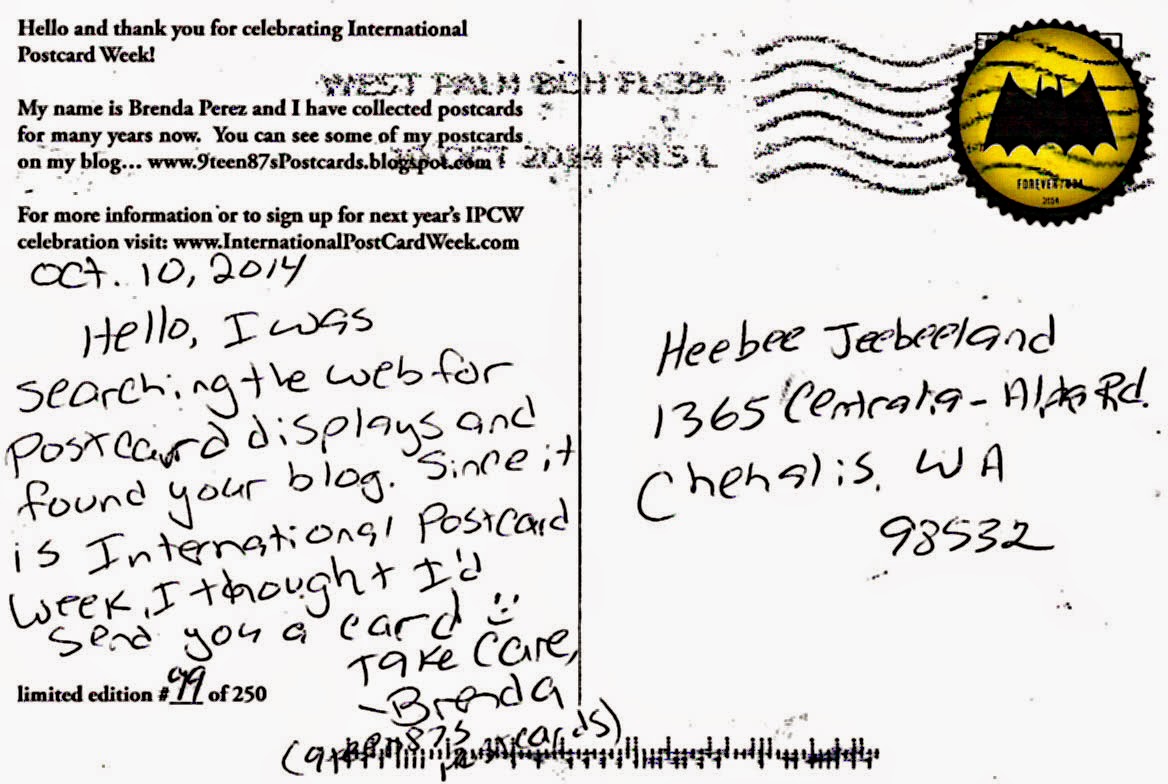 Hello and thank you for celebrating International
Postcard Week!
WEST PALM BCH FL 334
My name is Brenda Perez and I have collected postcards
for many years now. You can see some of my postcards
on my blog... www.9teen87sPostcards.blogspot.com !
OCT 2014 PM 5 L
For more information or to sign up for next year's IPCW
celebration visit: www.InternationalPostCardWeek.com
FOREVER USA
2014
Oct. 10, 2014
Hello, I was
searching the web for
postcard displays and
found your blog. Since it
is International Postcard
week, I thought I'd
send you a card :)
Take Care,
-Brenda
(9teen87s postcards)
limited edition # 99 of 250
Heebee Jeebeeland
1365 Centralia - Alpha Rd.
Chehalis, WA
98532